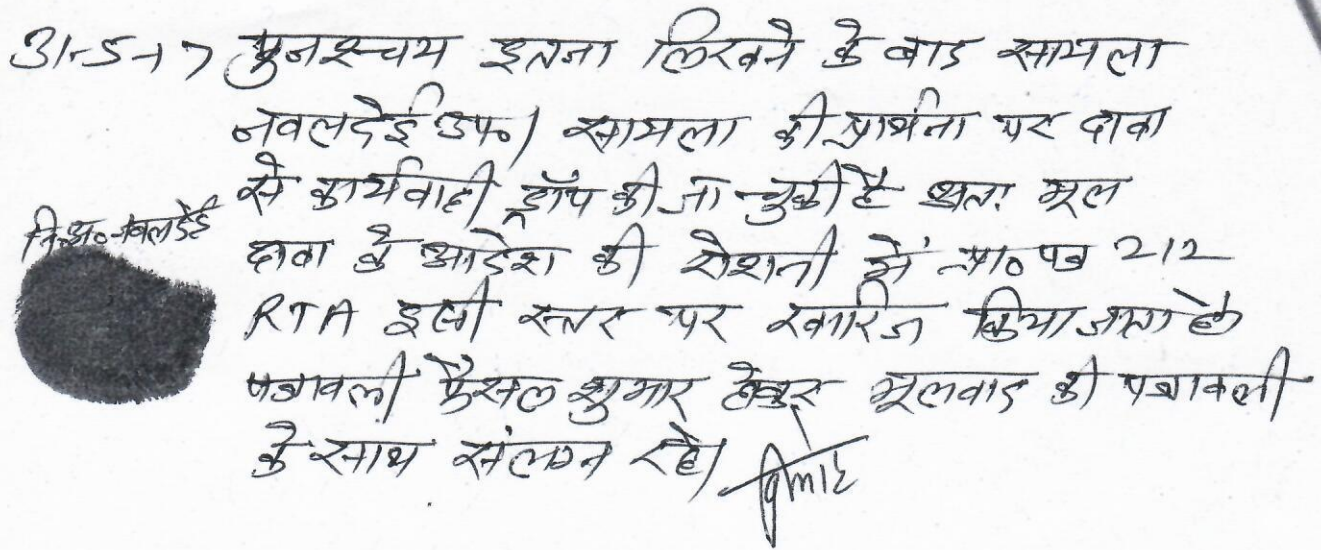 31-5-17 पुनश्चय इतना लिखने के बाद सायला
नवलदेई उप०। सायला की प्रार्थना पर दावा
से कार्यवाही ड्रॉप की जा चुकी है अतः मूल
नि.अ० नवलदेई
दावा के आदेश की रोशनी में प्रा० पत्र 212
RTA इसी स्तर पर खारिज किया जाता है
पत्रावली फैसल शुमार होकर मूलवाद की पत्रावली
के साथ संलग्न रहे।